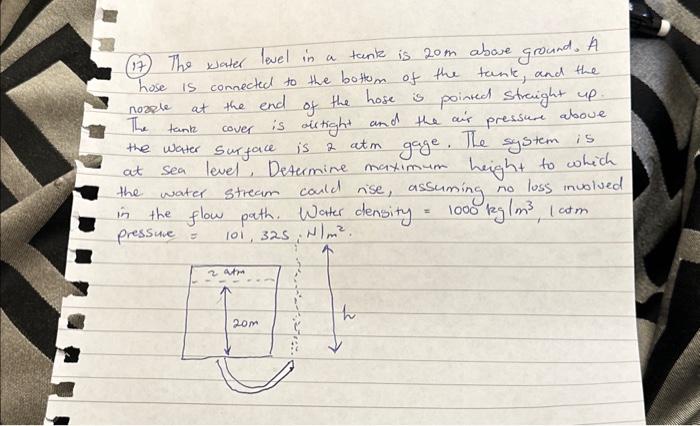 17 The water level in a tank is 20m above ground. A
hose is connected to the bottom of the tank, and the
nozzle at the end of the hose is pointed straight up.
The tank cover is airtight and the air pressure above
the water surface is 2 atm gage. The system is
at sea level. Determine maximum height to which
the water stream could rise, assuming no loss involved
in the flow path. Water density = 1000 kg/m³, 1 atm
pressure = 101,325 N/m².
2 atm
20m
h